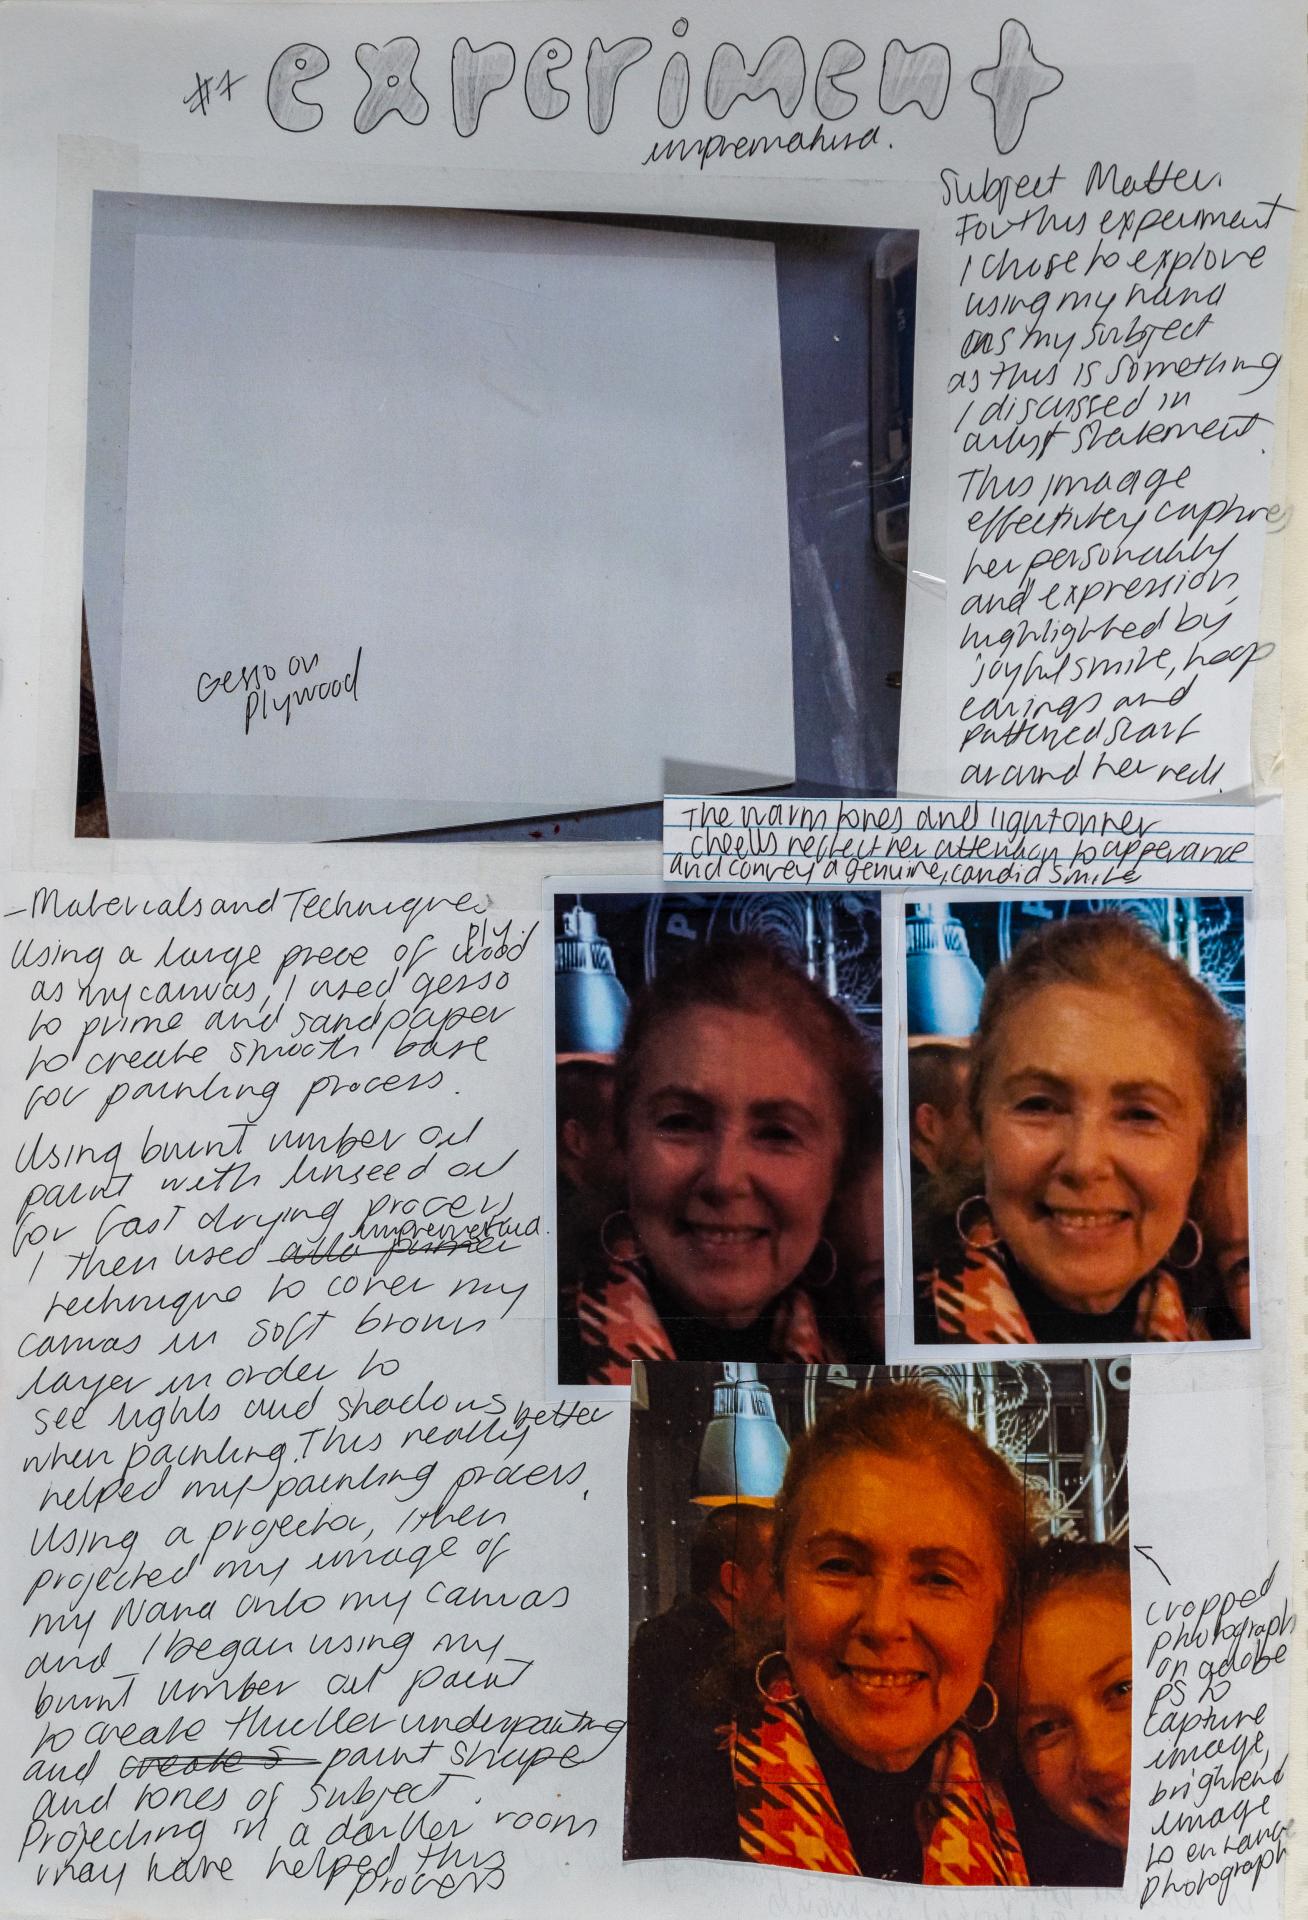 #7 experiment
impremahira.
Subject Matter.
For this experiment
I chose to explore
using my nana
as my subject
as this is something
I discussed in
artist statement.
This imaage
effectively captures
her personality
and expression,
highlighted by
joyful smile, hoop
earings and
patterned scarf
around her neck.
Gesso on
plywood
The warm tones and light on her
cheeks reflect her attention to apperance
and convey a genuine, candid smile
- Materials and Techniques
Using a large piece of ply wood
as my canvas, I used gesso
to prime and sandpaper
to create smooth base
for painting process.
Using burnt umber oil
paint with linseed oil
for fast drying process
I then used
technique to cover my
canvas in soft brown
layer in order to
see lights and shadows better
when painting. This really
helped my painting process.
Using a projector, I then
projected my image of
my Nana onto my canvas
and I began using my
burnt umber oil paint
to create thicker underpainting
and create s paint shape
and tones of subject.
Projecting in a darker room
may have helped this
process
cropped
photograph
on adobe
PS to
capture
image,
brightend
image
to enhance
photograph